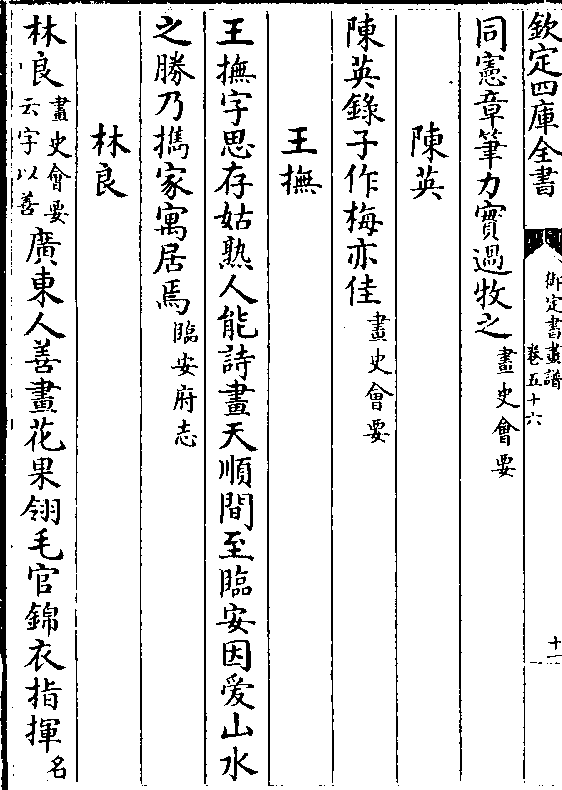 欽定四庫全書
御定書畫譜
卷五十六
十一
同憲章筆力實過牧之畫史會要
陳英
陳英錄子作梅亦佳畫史會要
王撫
王撫字思存姑熟人能詩畫天順間至臨安因爱山水
之勝乃攜家寓居焉臨安府志
林良
林良畫史會要云字以善廣東人善畫花果翎毛官錦衣指揮名